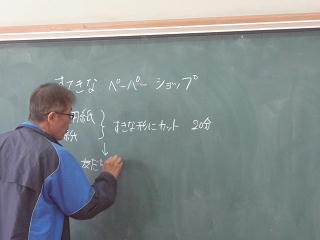 すてきな ペーパー ショップ
用紙
紙
すきな形にカット 20分
↓
友だ